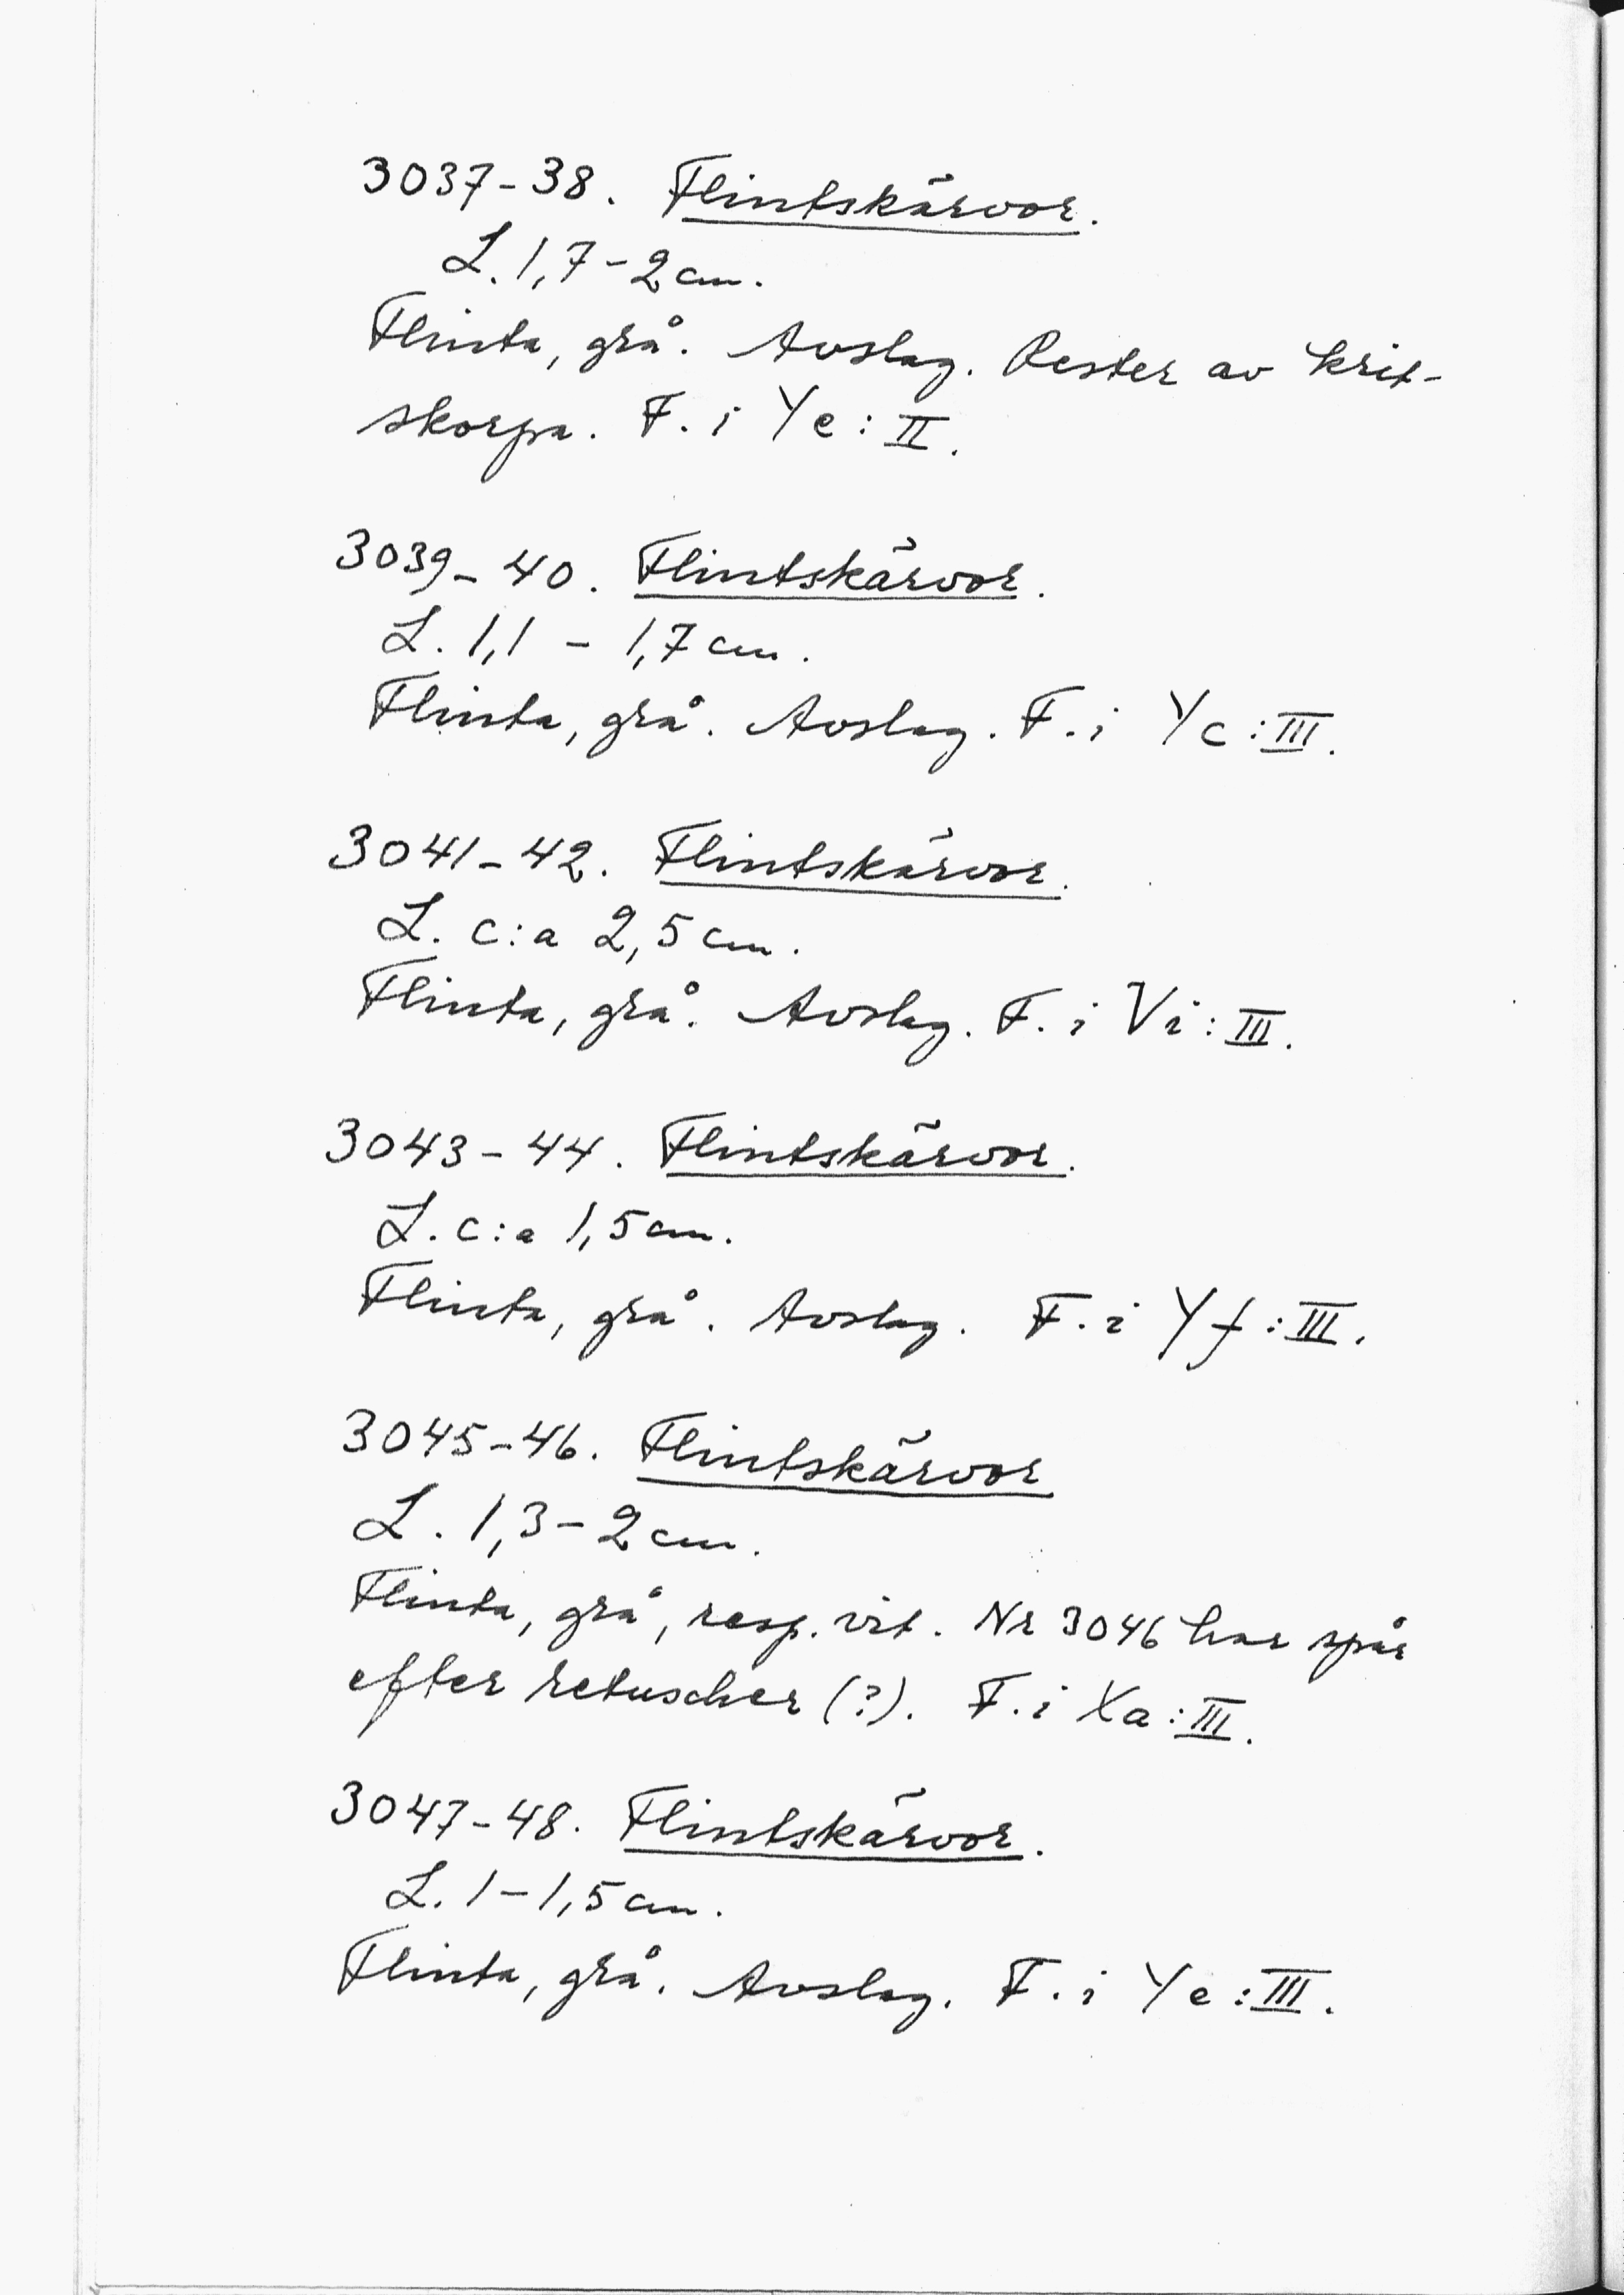 3037-38. Flintskärvor.
L. 1,7-2 cm.
Flinta, grå. Avslag. Rester av krit-
skorpa. F. i Ye: II.
3039-40. Flintskärvor.
L. 1,1 - 1,7 cm.
Flinta, grå. Avslag. F. i Yc: III.
3041-42. Flintskärvor.
L. c:a 2,5 cm.
Flinta, grå. Avslag. F. i Vi: III.
3043-44. Flintskärvor.
L. c:a 1,5 cm.
Flinta, grå. Avslag. F. i Yf: III.
3045-46. Flintskärvor
L. 1,3-2 cm.
Flinta, grå, resp. vit. Nr 3046 har spår
efter retuscher (?). F. i Xa: III.
3047-48. Flintskärvor.
L. 1-1,5 cm.
Flinta, grå. Avslag. F. i Ye: III.